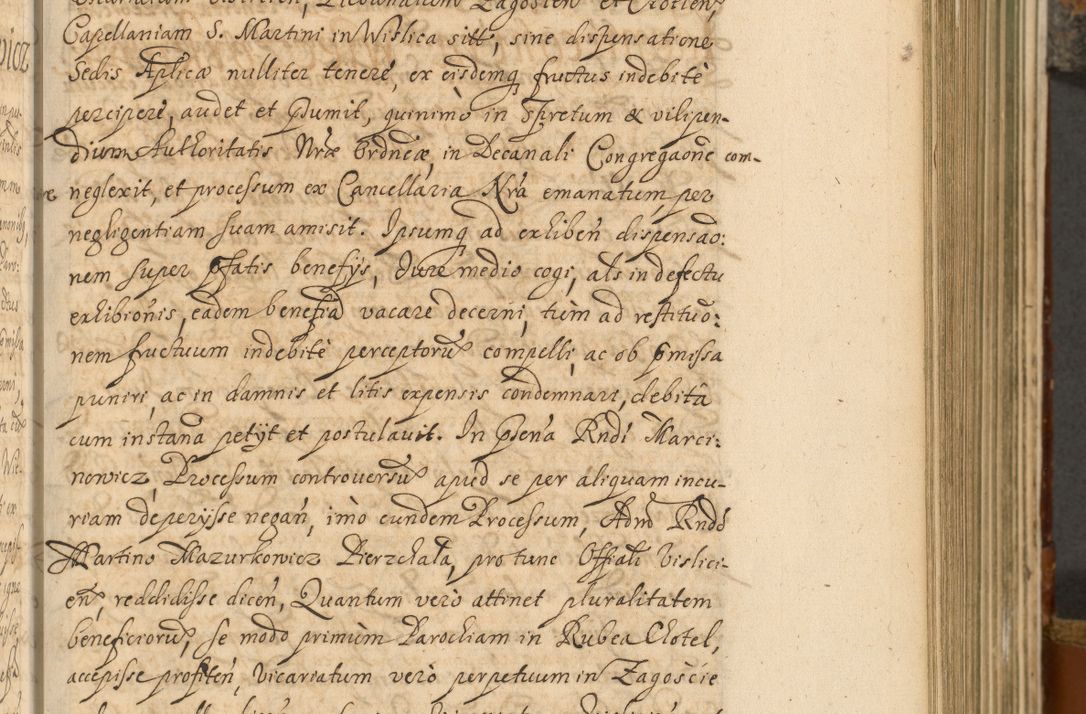 Capellaniam S. Martini in Wislica sitt, sine dispensatione
Sedis Aplicæ nulliter tenere, ex eisdemq fructus indebitè
percipere, audet et Psumit, quinimò in Spretum & vilipen-
dium Authoritatis Nræ Ordneæ, in Decanali Congregaone com-
neglexit, et processum ex Cancellaria Nra emanatum, per
negligentiam suam amisit. Ipsumq ad exhiben dispensao:
nem super Pfatis beneficijs, Jure medio cogi, als in defectu
exhibionis, eadem beneficia vacare decerni, tùm ad restituo:
nem fructuum indebitè perceptoru compelli, ac ob pmissa
puniri, ac in damnis et litis expensis condemnari, debita
cum instana petijt et postulavit. In Psena Rndi Marci:
nowicz, Processum controversu apud se per aliquam incu-
riam deperijsse negan, imò eundem Processum, Adm Rndo
Martino Mazurkowicz Pierzchała, pro tunc Offiali Vislici-
en, reddidisse dicen, Quantum verò attinet pluralitatem
beneficioru, se modo primùm Parochiam in Rubea Chotel,
accepisse profiten, Vicariatum verò perpetuum in Zagoście